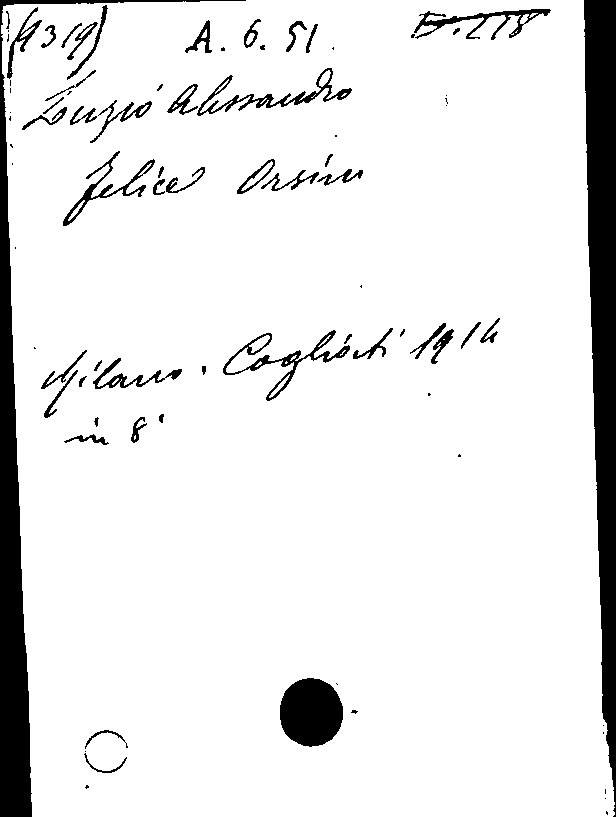 (9319) A. 6. 51. D.218
Luzio Alessandro
Felice Orsini
Milano. Cogliati 1914
in 8°